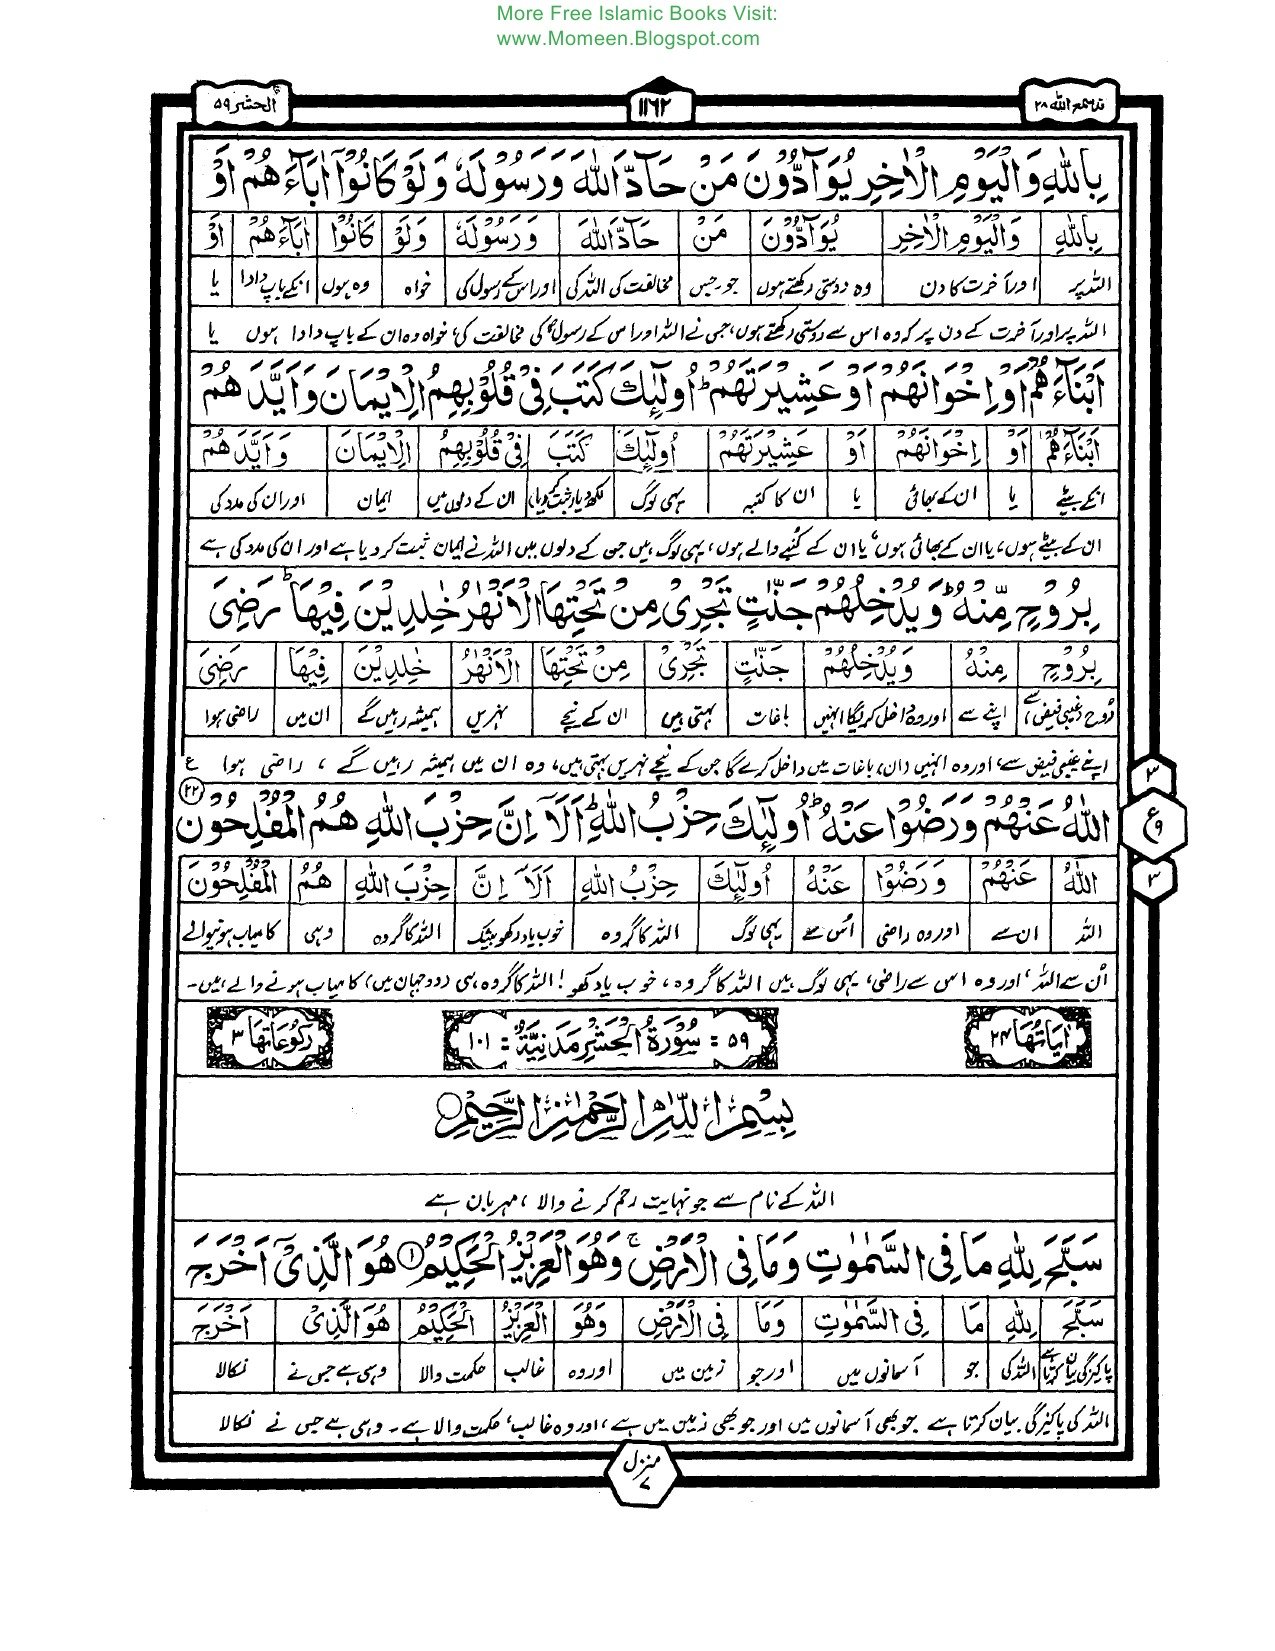 More Free Islamic Books Visit:
www.Momeen.Blogspot.com
قد سمع الله ۲۸
۱۱۶۲
الحشر ۵۹
بِاللّٰهِ وَالْيَوْمِ الْاٰخِرِ يُوَآدُّوْنَ مَنْ حَآدَّ اللّٰهَ وَرَسُوْلَهٗ وَلَوْ كَانُوْٓا اٰبَآءَهُمْ اَوْ
بِاللّٰهِ وَالْيَوْمِ الْاٰخِرِ يُوَآدُّوْنَ مَنْ حَآدَّ اللّٰهَ وَرَسُوْلَهٗ وَلَوْ كَانُوْٓا اٰبَآءَهُمْ اَوْ
اللہ پر اور آخرت کا دن وہ دوستی رکھتے ہوں جو۔جس مخالفت کی اللہ کی اور اس کے رسول کی خواہ وہ ہوں انکے باپ دادا یا
اللہ پر اور آخرت کے دن پر کہ وہ اس سے دوستی رکھتے ہوں، جس نے اللہ اور اس کے رسولؐ کی مخالفت کی، خواہ وہ ان کے باپ دادا ہوں یا
اَبْنَآءَهُمْ اَوْ اِخْوَانَهُمْ اَوْ عَشِيْرَتَهُمْ ؕ اُولٰٓئِكَ كَتَبَ فِيْ قُلُوْبِهِمُ الْاِيْمَانَ وَاَيَّدَهُمْ
اَبْنَآءَهُمْ اَوْ اِخْوَانَهُمْ اَوْ عَشِيْرَتَهُمْ اُولٰٓئِكَ كَتَبَ فِيْ قُلُوْبِهِمُ الْاِيْمَانَ وَاَيَّدَهُمْ
انکے بیٹے یا ان کے بھائی یا ان کا کنبہ یہی لوگ لکھ دیا (ثبت کر دیا) ان کے دلوں میں ایمان اور ان کی مدد کی
ان کے بیٹے ہوں، یا ان کے بھائی ہوں، یا ان کے کنبے والے ہوں، یہی لوگ ہیں جن کے دلوں میں اللہ نے ایمان ثبت کر دیا ہے اور ان کی مدد کی ہے
بِرُوْحٍ مِّنْهُ ؕ وَيُدْخِلُهُمْ جَنّٰتٍ تَجْرِيْ مِنْ تَحْتِهَا الْاَنْهٰرُ خٰلِدِيْنَ فِيْهَا ؕ رَضِيَ
بِرُوْحٍ مِنْهُ وَيُدْخِلُهُمْ جَنّٰتٍ تَجْرِيْ مِنْ تَحْتِهَا الْاَنْهٰرُ خٰلِدِيْنَ فِيْهَا رَضِيَ
رُوح (غیبی فیض) سے اپنے سے اور وہ داخل کریگا انہیں باغات بہتی ہیں ان کے نیچے نہریں ہمیشہ رہیں گے ان میں راضی ہوا
اپنے غیبی فیض سے، اور وہ انہیں (ان) باغات میں داخل کرے گا جن کے نیچے نہریں بہتی ہیں، وہ ان میں ہمیشہ رہیں گے، راضی ہوا ع
۳
اللّٰهُ عَنْهُمْ وَرَضُوْا عَنْهُ ؕ اُولٰٓئِكَ حِزْبُ اللّٰهِ ؕ اَلَآ اِنَّ حِزْبَ اللّٰهِ هُمُ الْمُفْلِحُوْنَ ۲۲
ع
اللّٰهُ عَنْهُمْ وَرَضُوْا عَنْهُ اُولٰٓئِكَ حِزْبُ اللّٰهِ اَلَآ اِنَّ حِزْبَ اللّٰهِ هُمُ الْمُفْلِحُوْنَ
۳
اللہ ان سے اور وہ راضی اُس سے یہی لوگ اللہ کا گروہ خوب یاد رکھو بیشک اللہ کا گروہ وہی کامیاب ہونیوالے
اُن سے اللہ، اور وہ اس سے راضی، یہی لوگ ہیں اللہ کا گروہ، خوب یاد رکھو! اللہ کا گروہ ہی (دو جہان میں) کامیاب ہونے والے ہیں۔
اٰيَاتُهَا ۲۴
۵۹ = سُوْرَةُ الْحَشْرِ مَدَنِيَّةٌ = ۱۰۱
رُكُوْعَاتُهَا ۳
بِسْمِ اللّٰهِ الرَّحْمٰنِ الرَّحِيْمِ
اللہ کے نام سے جو نہایت رحم کرنے والا، مہربان ہے
سَبَّحَ لِلّٰهِ مَا فِي السَّمٰوٰتِ وَمَا فِي الْاَرْضِ ۚ وَهُوَ الْعَزِيْزُ الْحَكِيْمُ ۱ هُوَ الَّذِيْٓ اَخْرَجَ
سَبَّحَ لِلّٰهِ مَا فِي السَّمٰوٰتِ وَمَا فِي الْاَرْضِ وَهُوَ الْعَزِيْزُ الْحَكِيْمُ هُوَ الَّذِيْ اَخْرَجَ
پاکیزگی بیان کرتا ہے اللہ کی جو آسمانوں میں اور جو زمین میں اور وہ غالب حکمت والا وہی ہے جس نے نکالا
اللہ کی پاکیزگی بیان کرتا ہے جو بھی آسمانوں میں اور جو بھی زمین میں ہے، اور وہ غالب، حکمت والا ہے۔ وہی ہے جس نے نکالا
منزل ۷